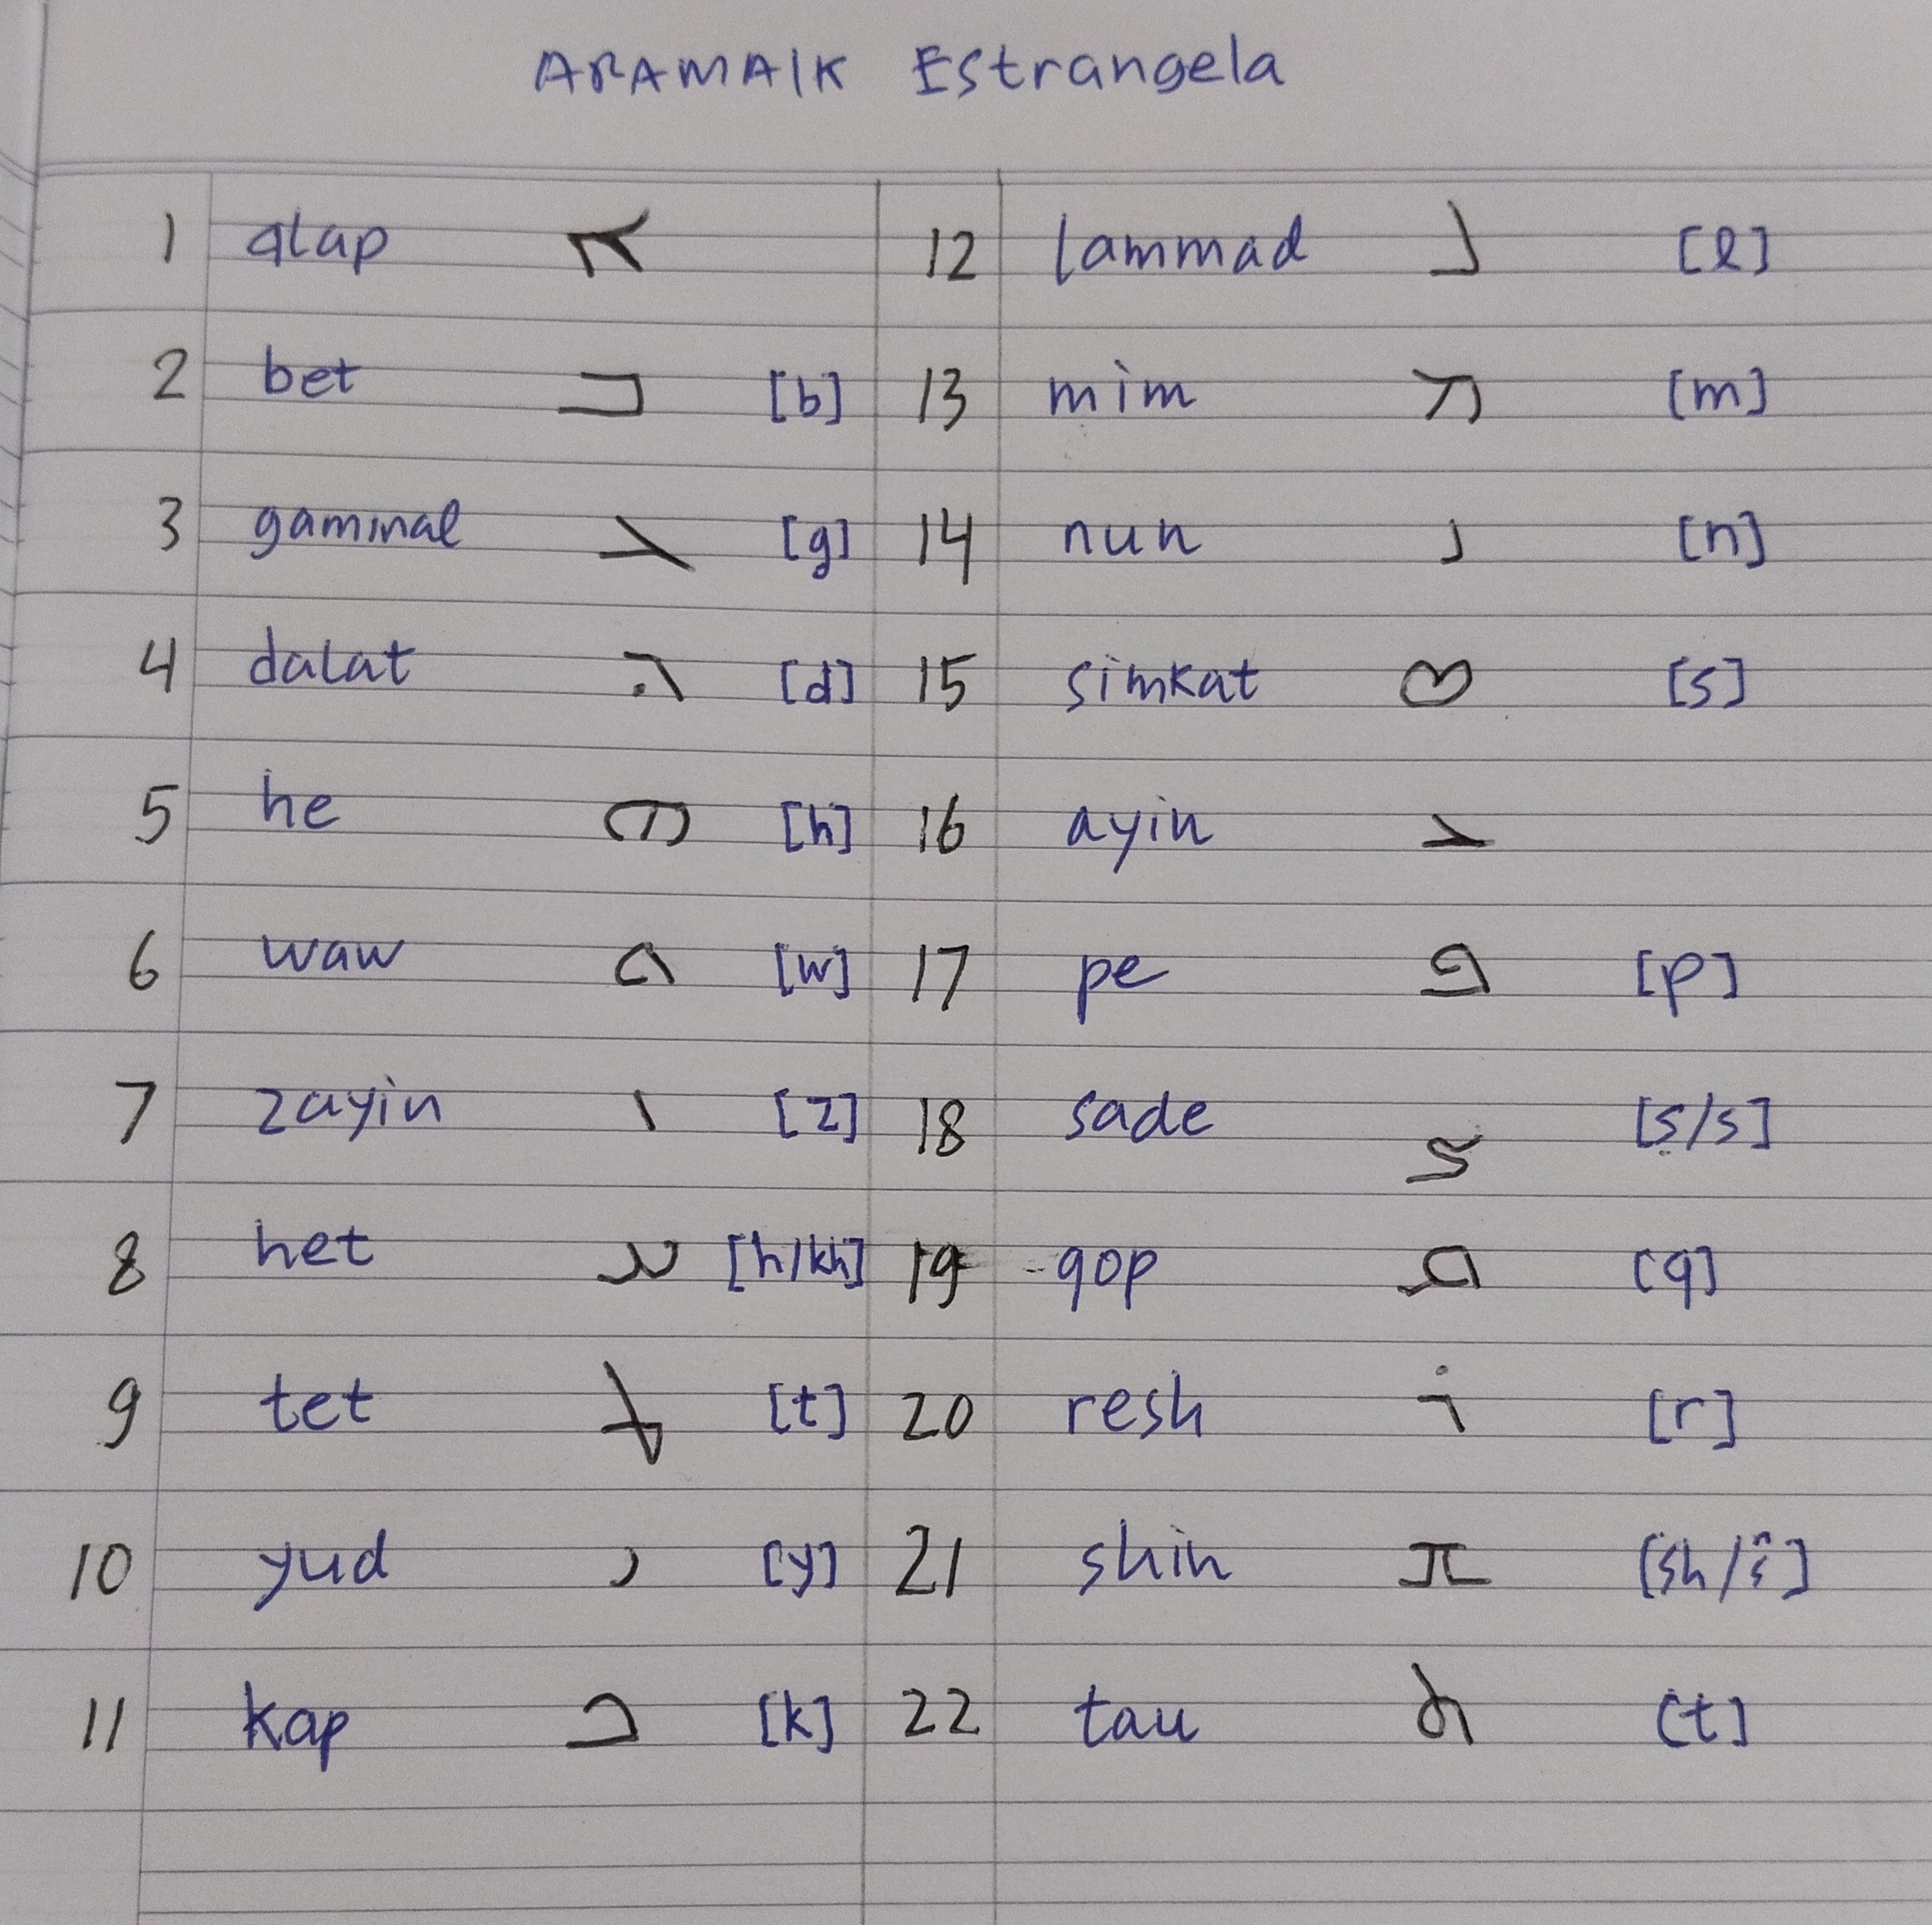 ARAMAIK Estrangela
1 alap ܐ
2 bet ܒ [b]
3 gammal ܓ [g]
4 dalat ܕ [d]
5 he ܗ [h]
6 waw ܘ [w]
7 zayin ܙ [z]
8 het ܚ [h/kh]
9 tet ܛ [t]
10 yud ܝ [y]
11 kap ܟ [k]
12 lammad ܠ [l]
13 mim ܡ [m]
14 nun ܢ [n]
15 simkat ܣ [s]
16 ayin ܥ
17 pe ܦ [p]
18 sade ܨ [ṣ/s]
19 qop ܩ [q]
20 resh ܪ [r]
21 shin ܫ [sh/š]
22 tau ܬ [t]